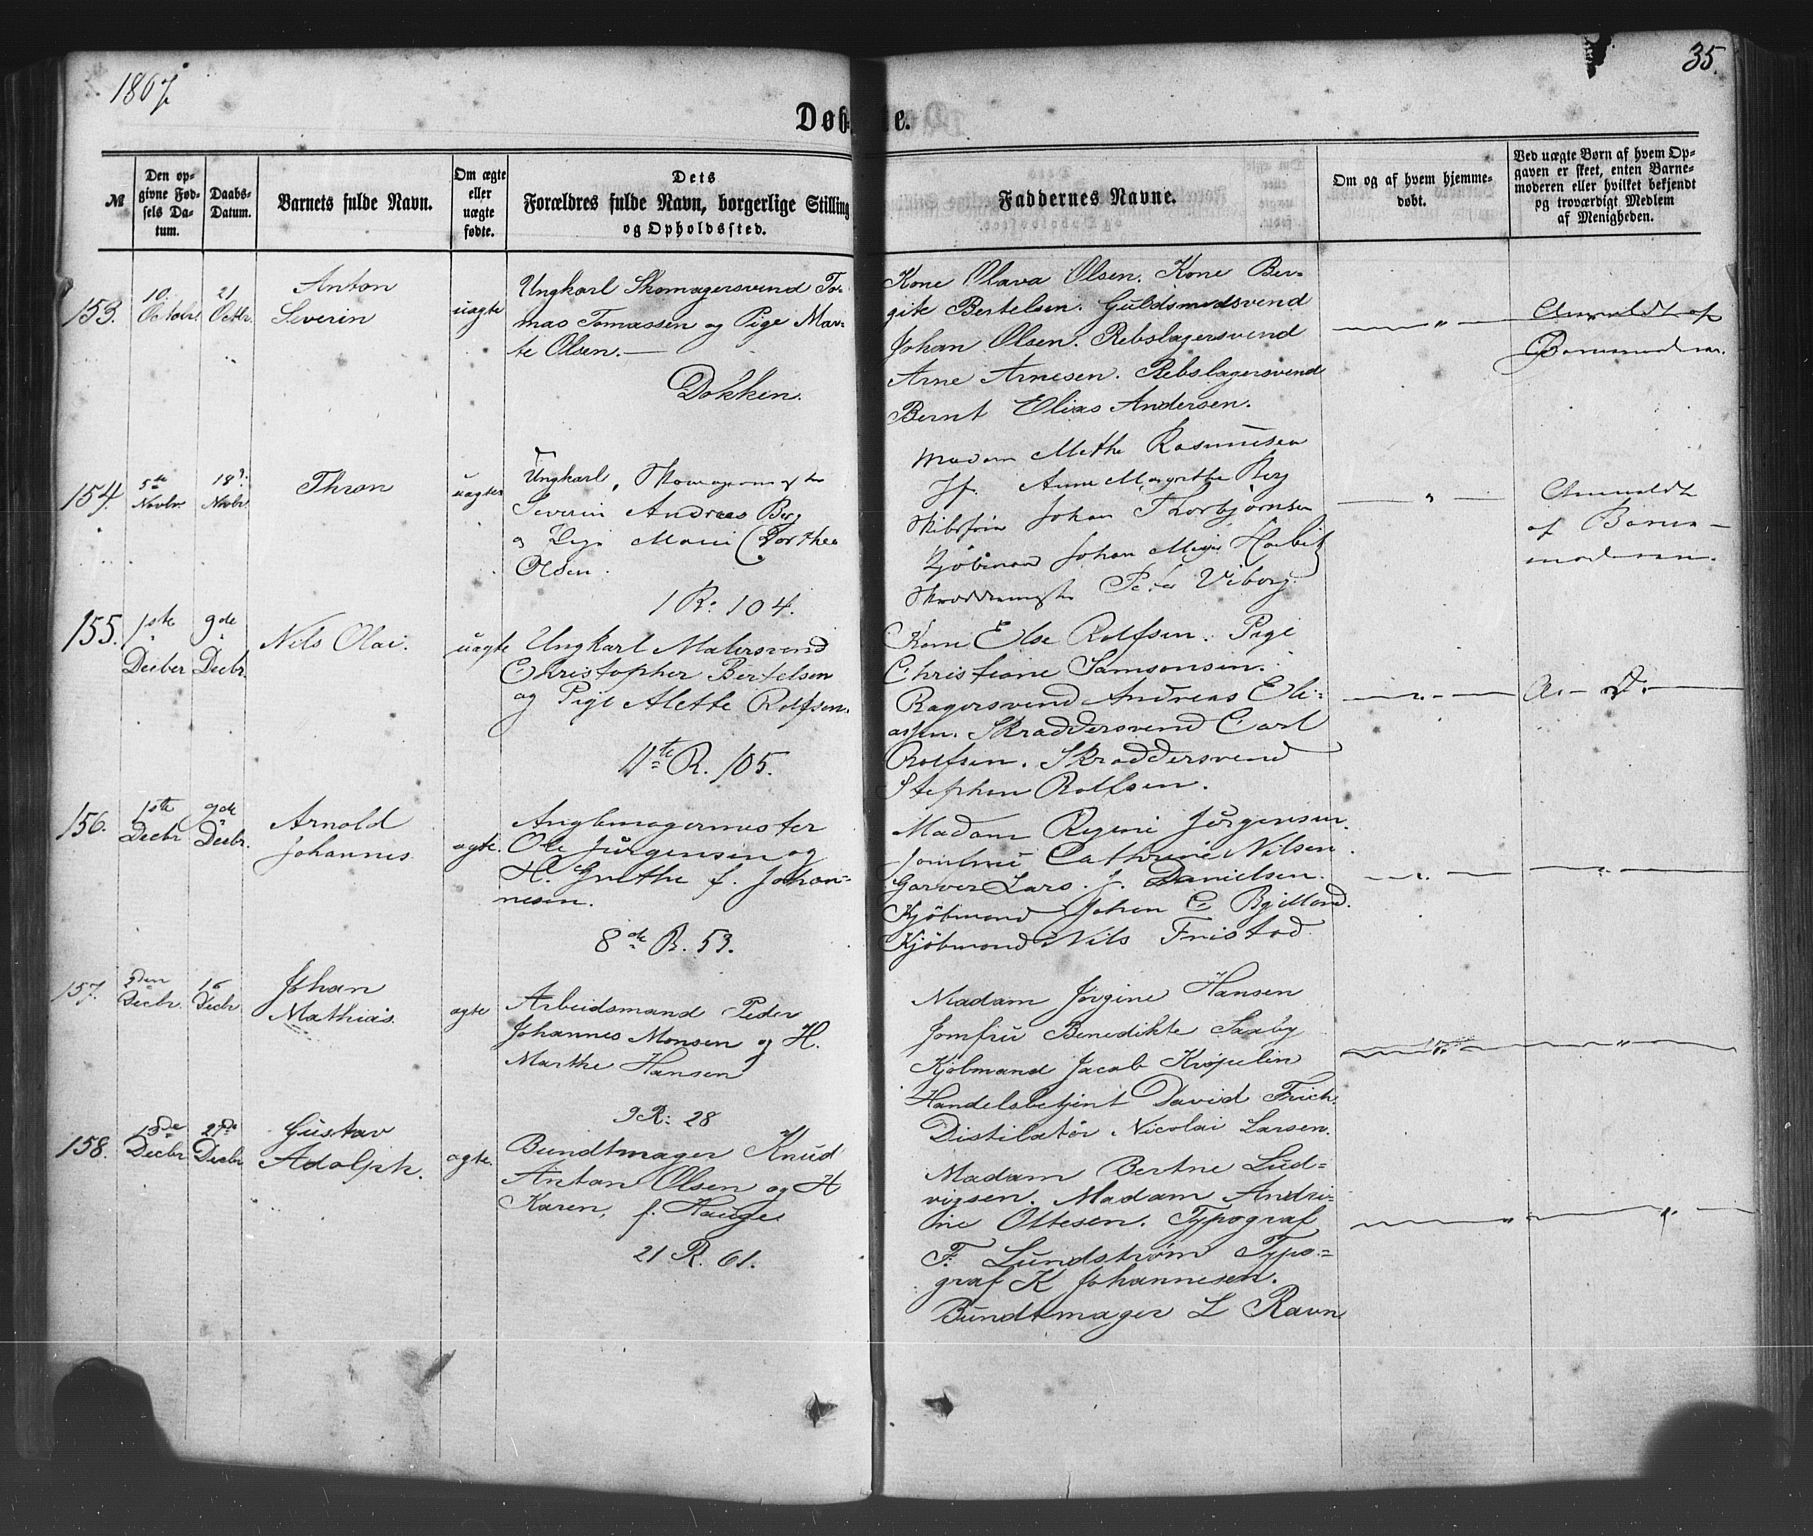 1867.
35.
Døbte.
№
Den op-
givne Fød-
sels Da-
tum.
Daabs-
Datum.
Barnets fulde Navn.
Om ægte
eller
uægte
fødte.
Dets
Forældres fulde Navn, borgerlige Stilling
og Opholdssted.
Faddernes Navne.
Om og af hvem hjemme-
døbt.
Ved uægte Børn af hvem Op-
gaven er skeet, enten Barne-
moderen eller hvilket bekjendt
og troværdigt Medlem
af Menigheden.
153.
10.
Octobr.
21
Octbr.
Anton
Severin
uægte
Ungkarl Skomagersvend To-
mas Tomassen og Pige Mar-
te Olsen.
Dokken.
Kone Olava Olsen. Kone Ber-
gite Bertelsen. Guldsmedsvend
Johan Olsen. Rebslagersvend
Arne Arnesen. Rebslagersvend
Bernt Elias Andersen.
"
Anmeldt af
Barnemoderen.
154.
5te
Novbr.
18de
Novbr.
Thron
uægte
Ungkarl, Skomagermester
Severin Andreas Berg
og Pige Marie Dorthea
Olsen.
1 R: 104.
Madam Methe Rasmusen
Jf. Anne Margrethe Berg
Johan Thorbjørnsen
Kjøbmand Johan
Skræddermester Peter Viborg.
"
Anmeldt
af Barne-
moderen.
155.
1ste
Decber
9de
Decbr.
Nils Olai.
uægte
Ungkarl Malersvend
Christopher Bertelsen
og Pige Alette Rolfsen.
11te R. 105.
Kone Else Rolfsen. Pige
Christiane Samsonsen.
Bagersvend Andreas Eli-
assen. Skræddersvend Carl
Rolfsen. Skræddersvend
Stephen Rolfsen.
"
A. D.
156.
1ste
Decbr
9de
Decbr.
Arnold
Johannes
ægte.
Anglemagermester
Ole Jürgensen og
H. Grethe f. Johan-
nesen.
8de R. 53.
Madam Regine Jürgensen.
Jomfrue Cathrine Nilsen.
Garver Lars J. Danielsen.
Kjøbmand Johan C
Kjøbmand Nils Fristad
"
"
157.
Decbr.
16
Decbr
Johan
Mathias.
ægte
Arbeidsmand Peder
Johannes Monsen og H.
Marthe Hansen
9 R: 28
Madam Jørgine Hansen
Jomfru Benedikte Saaby
Kjøbmand Jacob Krøpelin
Handelsbetjent David Frich.
Distilatør Nicolai Larsen.
"
"
158.
13de
Decbr
27de
Decbr
Gustav
Adolph.
ægte.
Bundtmager Knud
Anton Olsen og H
Karen, f. Hauge
21 R. 61.
Madam Bertne Lud-
vigsen. Madam Andri-
ne Ottesen. Typograf
F. Lundstrøm Typo-
graf K Johannesen.
Bundtmager L Ravn
"
"